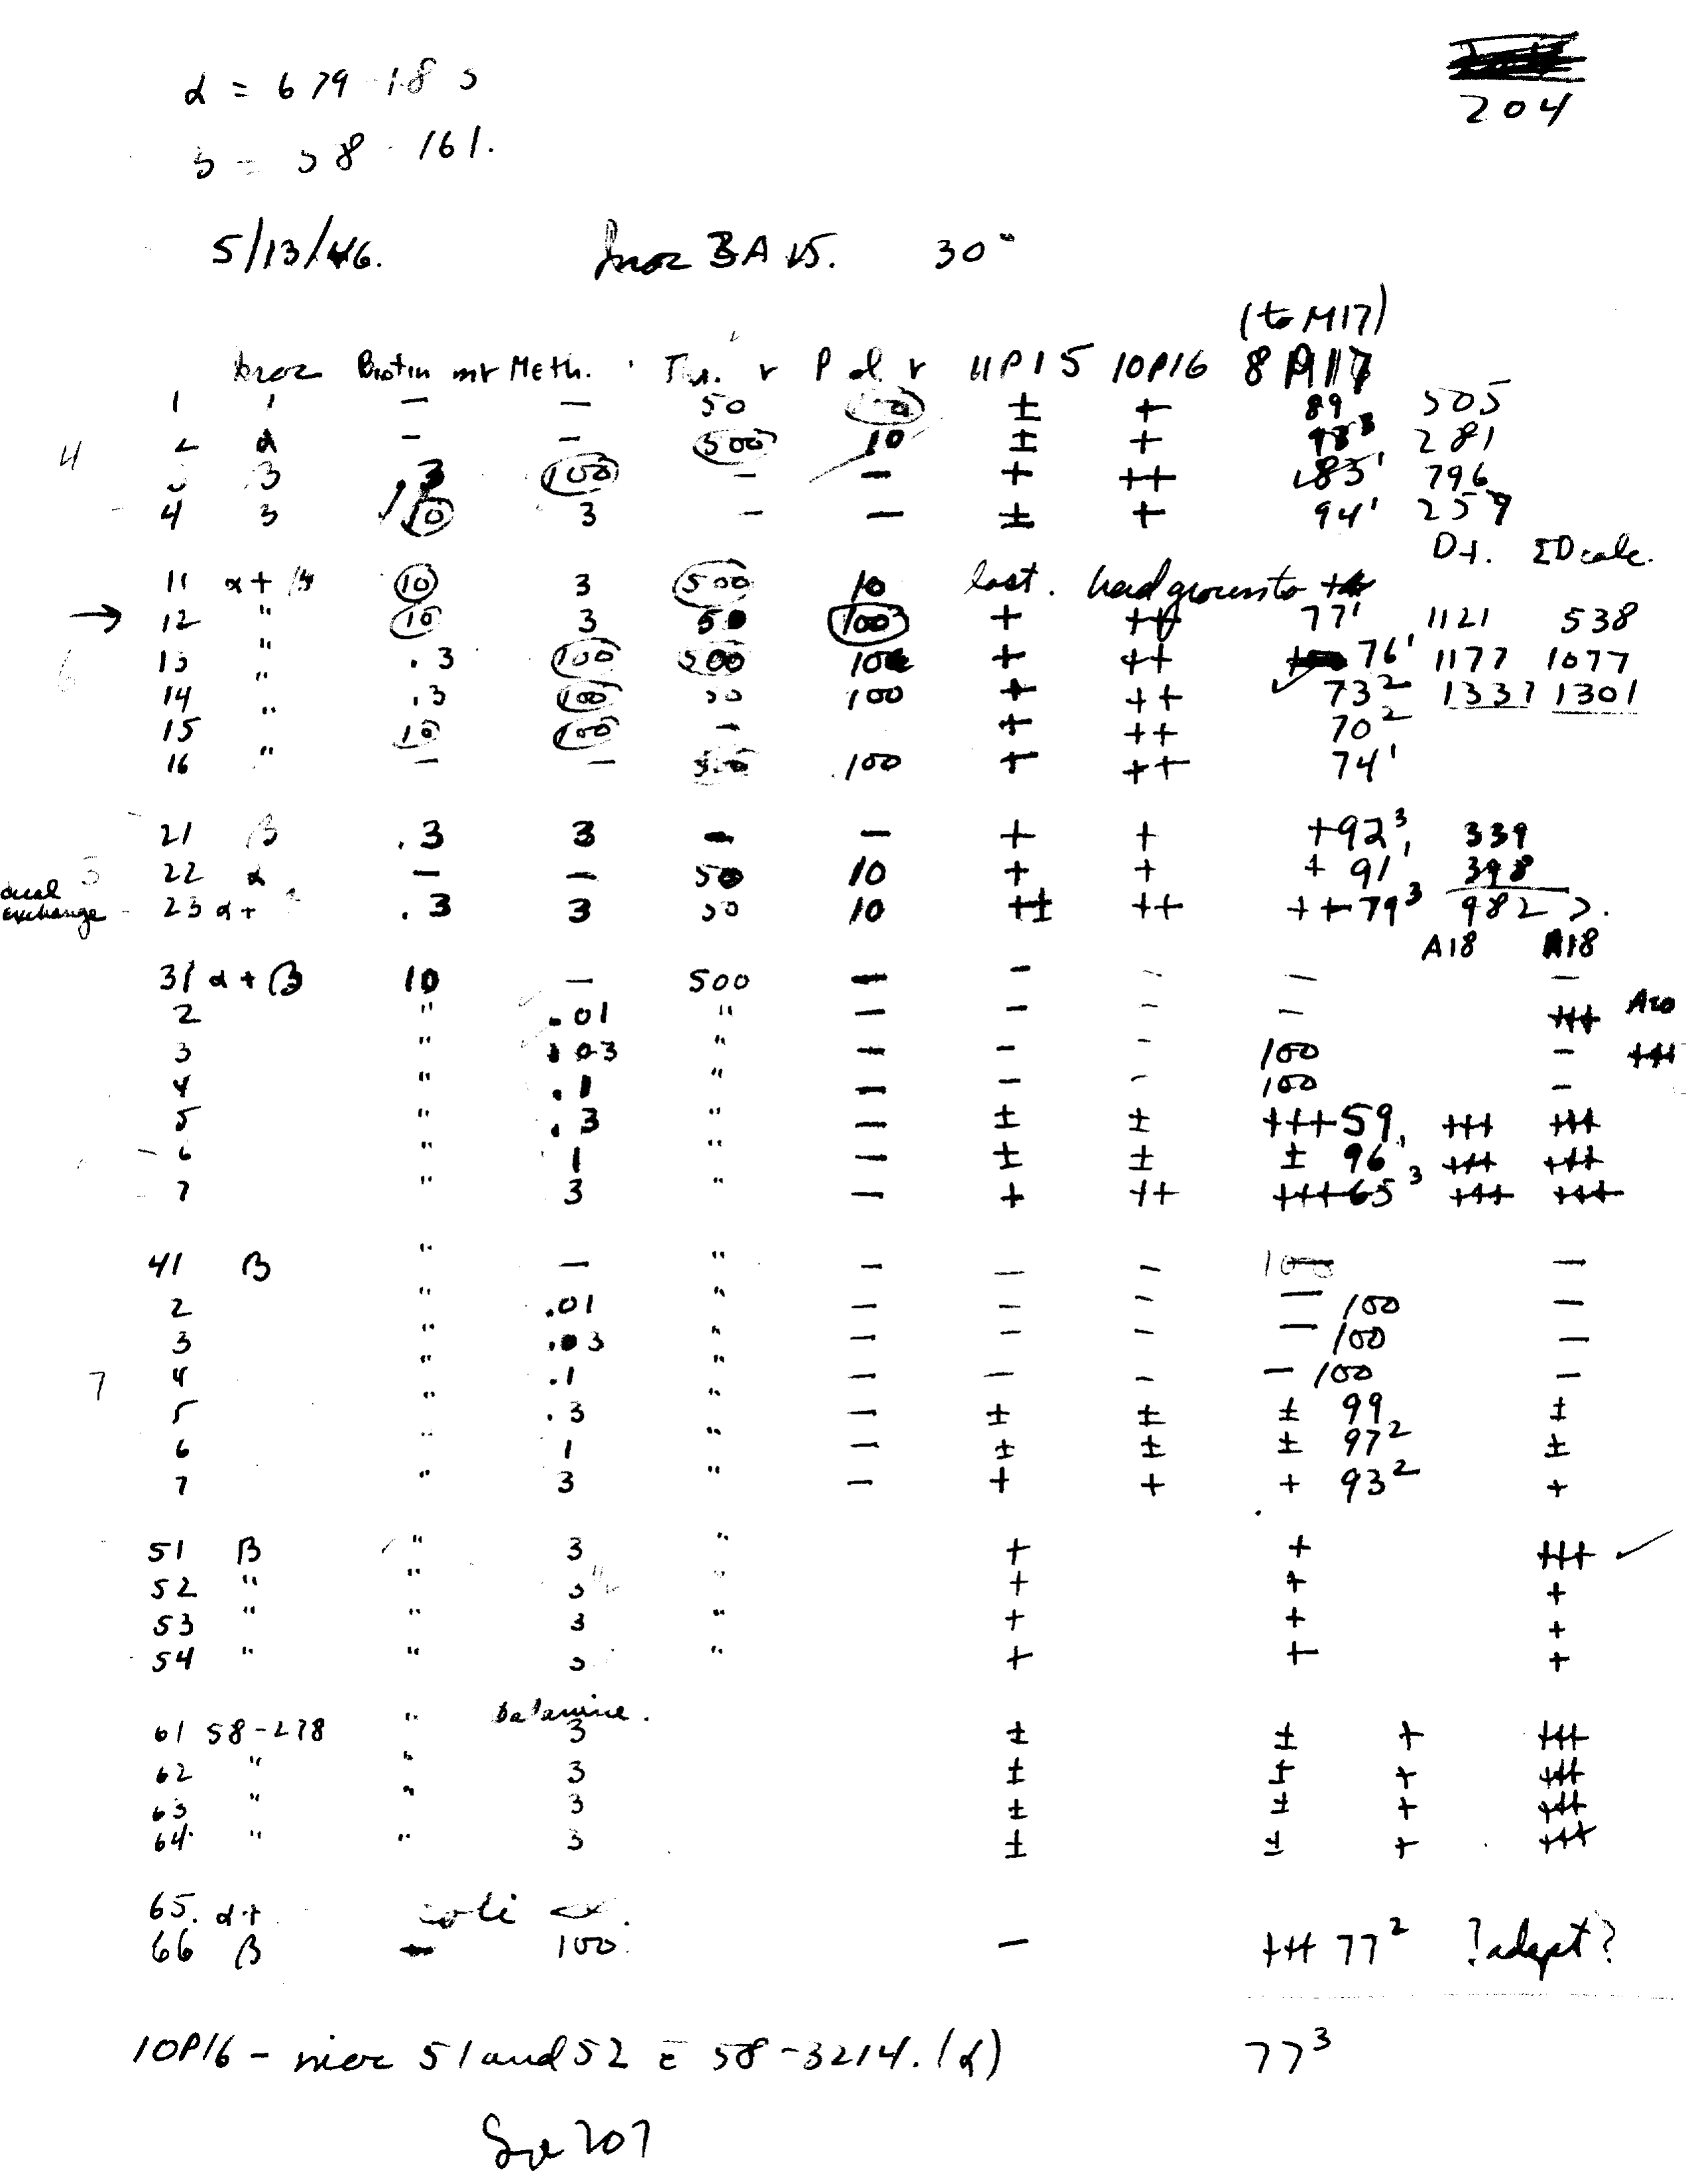 204
α = 679-183
β = 58-161.
5/13/46. Inoc 3A 15. 30°
(to M17)
Inoc Biotin mr Meth. Thr. r P d r 11P15 10P16 8 M17
1 — — 50 100 ± + 89 505
2 α — — 500 10 ± + 281
4 3 3 .3 100 — — + ++ 85' 796
4 3 10 3 — — ± + 94' 259
D+. ΣDcalc.
11 α + β 10 3 500 10 lost. had grown to
→ 12 " 10 3 50 100 + ++ 77' 1121 538
13 " .3 100 500 100 + ++ 76' 1177 1077
6 14 " .3 100 50 100 + ++ ✓ 73² 1337 1301
15 " 10 100 — + ++ 70²
16 " — — 500 100 + ++ 74'
21 β .3 3 — — + + +92³ 339
22 α — — 50 10 + + + 91' 398
dual exchange 23 α+ .3 3 50 10 ++ ++ ++79³ 982 >.
A18 A18
31 α + β 10 — 500 — — — — —
2 " .01 " — — — — +++ A20
3 " .03 " — — — 100 — +++
4 " .1 " — — — 100 —
5 " .3 " — ± ± +++59 +++ +++
6 " 1 " — ± ± ± 96' +++ +++
7 " 3 " — + ++ +++65³ +++ +++
41 β " — " — — — 100 —
2 " .01 " — — — — 100 —
3 " .03 " — — — — 100 —
7 4 " .1 " — — — — 100 —
5 " .3 " — ± ± ± 99 ±
6 " 1 " — ± ± ± 97² ±
7 " 3 " — + + + 93² +
51 β " 3 " + + +++ ✓
52 " " 3 " + + +
53 " " 3 " + + +
54 " " 3 " + + +
61 58-278 " 3 ± ± + +++
62 " " 3 ± ± + +++
63 " " 3 ± ± + +++
64 " " 3 ± ± + +++
65. α+ coli
66 β — 100. — +++ 77² ? adapt ?
10P16 - 51 and 52 c̄ 58-3214. (α) 77³
See 207